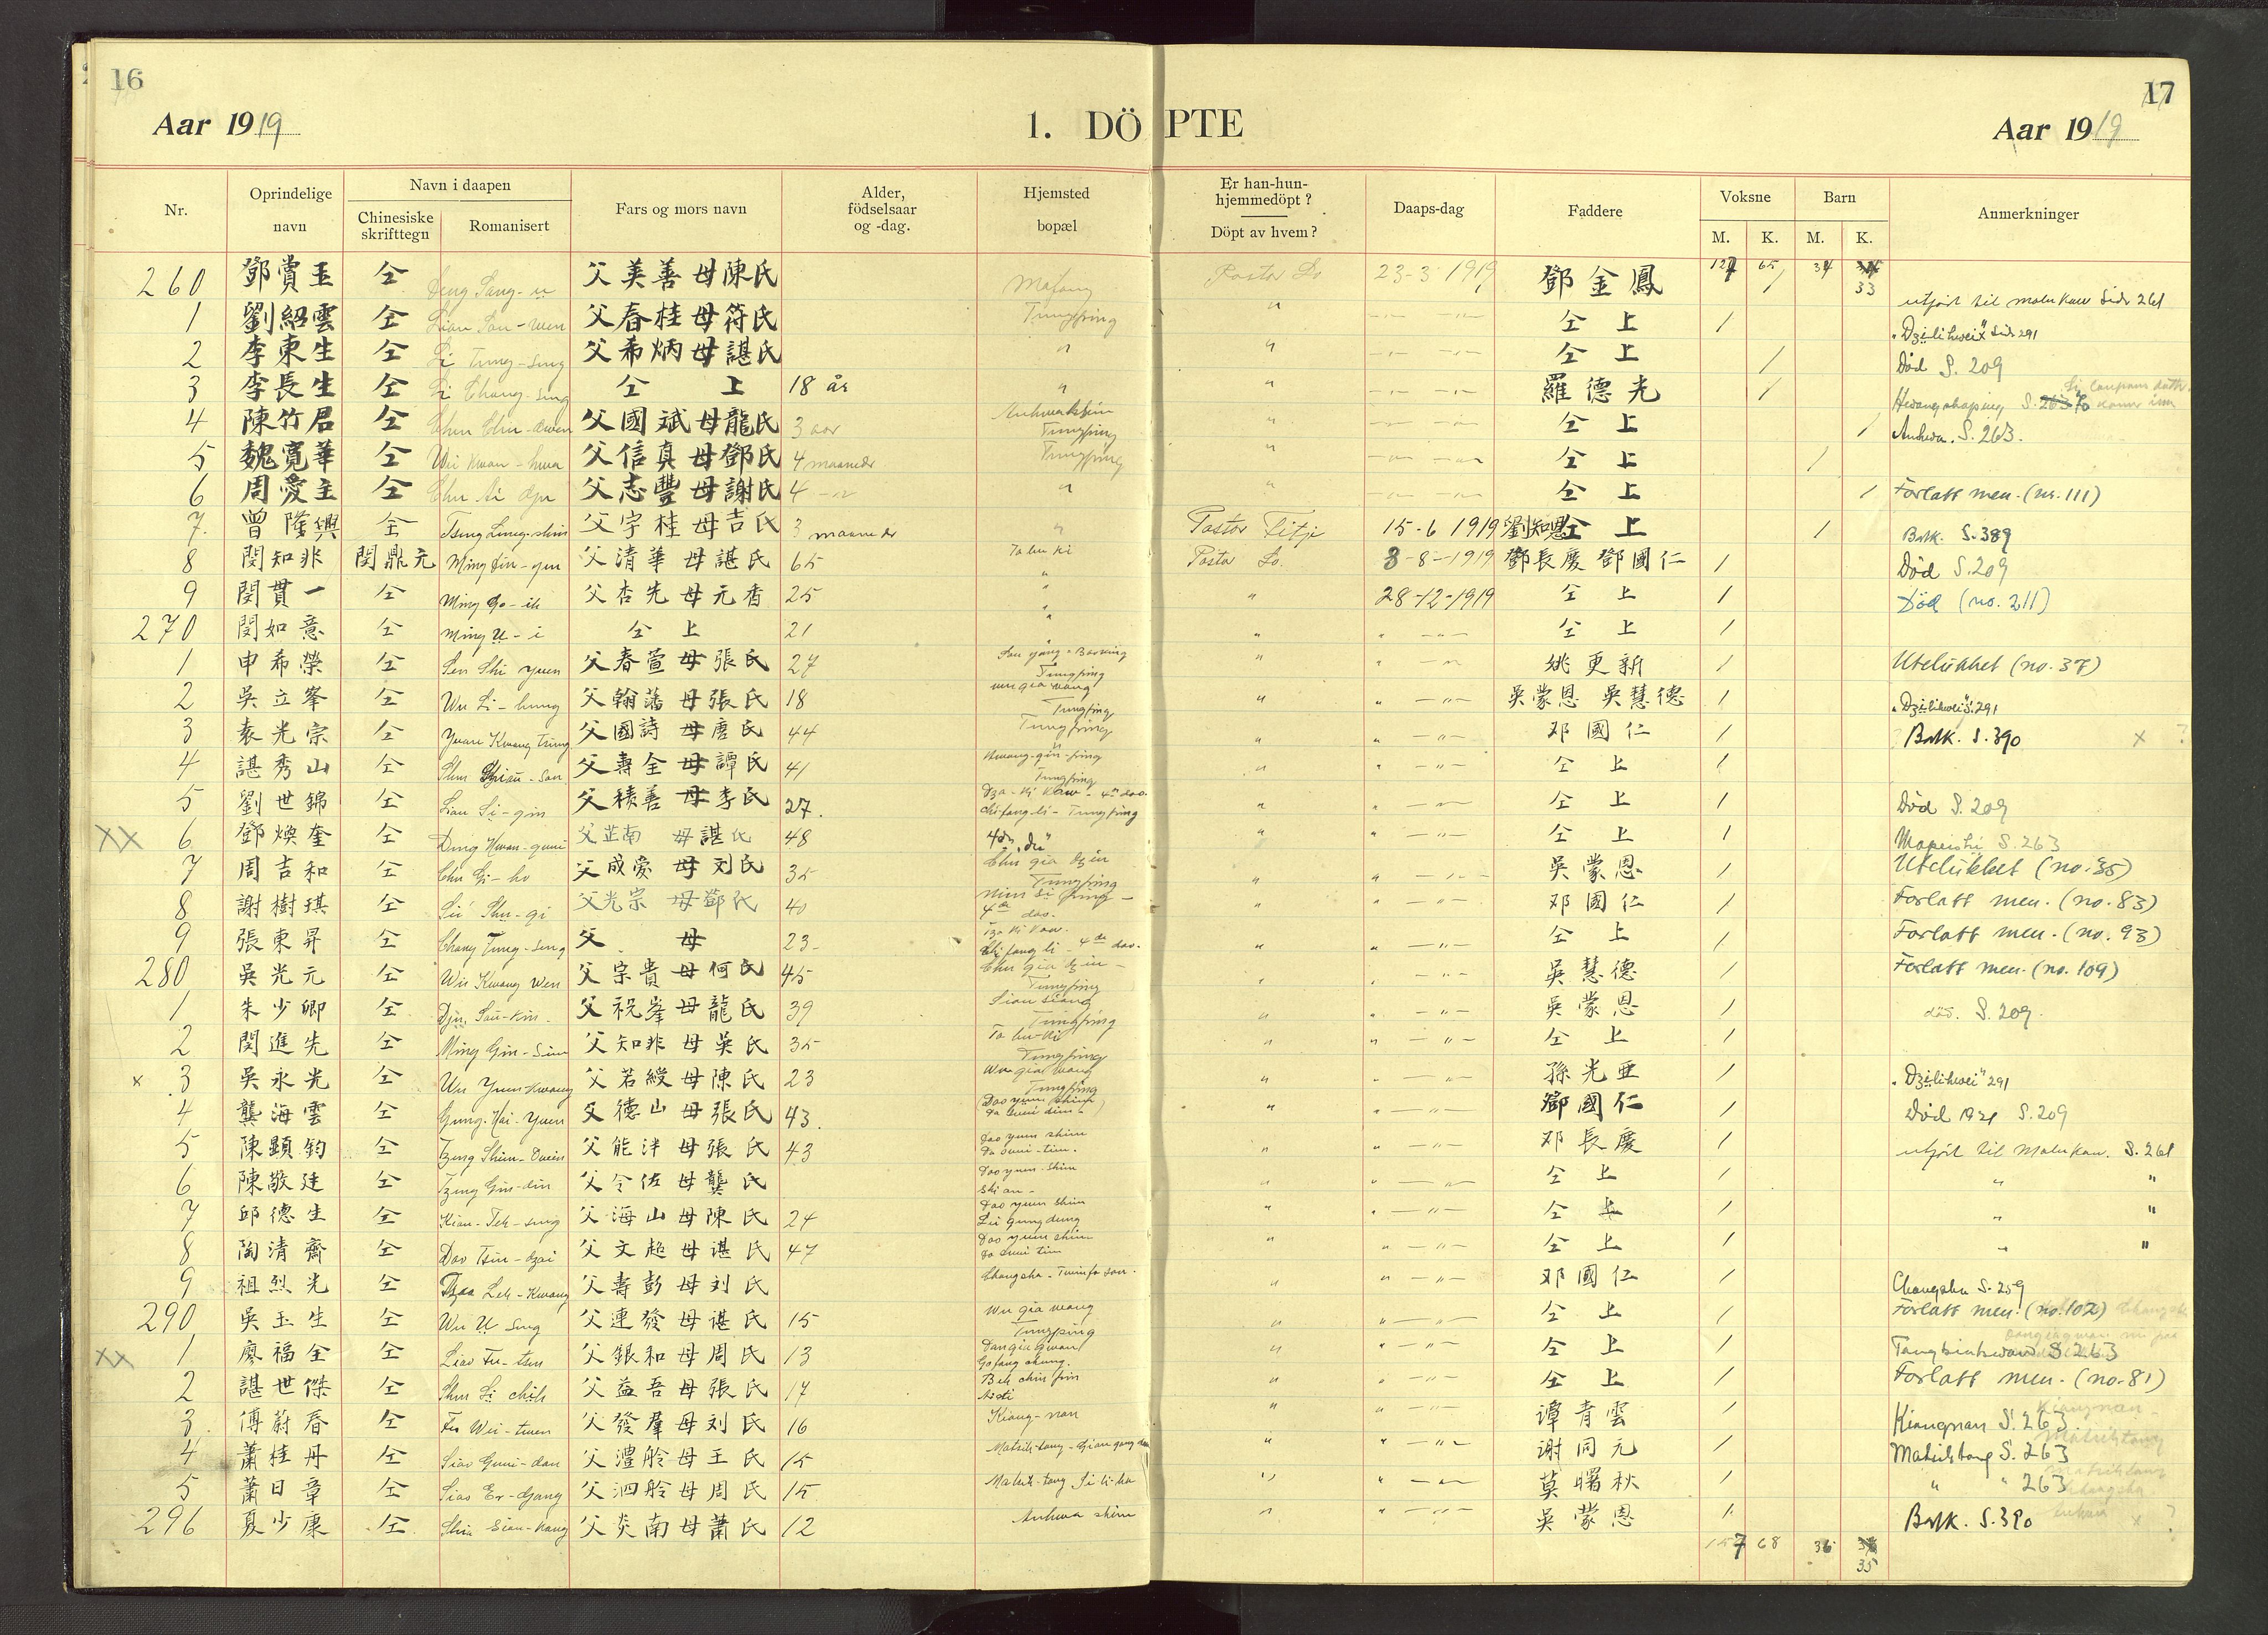 16
17
Aar 1919
1. DÖPTE
Aar 1919
Nr.
Oprindelige navn
Navn i daapen
Chinesiske skrifttegn
Romanisert
Fars og mors navn
Alder, födselsaar og -dag.
Hjemsted bopæl
Er han-hun- hjemmedöpt ?
Döpt av hvem ?
Daaps-dag
Faddere
Voksne
Barn
M. K. M. K.
Anmerkninger
127 65 34 33
260 鄧賞玉 仝 Deng Sang-u 父美善母陳氏 Mafang Pastor Lo 23-3 1919 鄧金鳳 / utfört til Malukau Side 261
1 劉紹雲 仝 Liau Sau-wen 父春桂母符氏 Tungping " — " — 仝上 / "Dzilihwei" Side 291
2 李東生 仝 Li Tung-seng 父希炳母諶氏 " " — " — 仝上 / Död S. 209
3 李長生 仝 Li Chang-seng 仝上 18 år " " — " — 羅德光 / Hwangshaping S.
4 陳竹君 仝 父國斌母龍氏 3 aar Tungping " — " — 仝上 / Anhwa. S. 263.
5 魏寬華 仝 Wei Kwan-hwa 父信真母鄧氏 4 maaneder Tungping " — " — 仝上 /
6 周愛主 仝 Chu Ai dju 父志豐母謝氏 4 — " — " " — " — 仝上 / Forlatt men. (nr. 111)
7. 曾隆興 仝 父宇桂母吉氏 3 maaneder " Pastor Fitje 15-6 1919 劉知恩 仝上 / Batk. S. 389
8 閔知非 閔鼎元 Ming Din-yuen 父清華母諶氏 65 Ta hu ki Pastor Lo. 3-8-1919 鄧長慶 鄧國仁 / Död S. 209
9 閔貫一 仝 Ming Go-ih 父杏先母元香 25 " " 28-12-1919 仝上 / Död (no. 211)
270 閔如意 仝 Ming U-i 仝上 21 " " " — " — 仝上 /
1 申希榮 仝 Sen Shi yuen 父春萱母張氏 27 Tungping " " — " — 姚更新 / Utelukket (no. 37)
2 吳立峯 仝 Wu Li-hung 父翰藩母張氏 18 Wu gia wang Tungping " " — " — 吳蒙恩 吳慧德 / "Dzilihwei" S. 291
3 袁光宗 仝 Yuan Kwang Tsung 父國詩母唐氏 44 Tungping " " — " — 邓國仁 / Batk. S. 390 x ?
4 諶秀山 仝 父壽全母譚氏 41 Tungping " " — " — 仝上 /
5 劉世錦 仝 Liau Si-gin 父積善母李氏 27. Chifang li - Tungping " " — " — 仝上 / Död S. 209
XX 6 鄧煥奎 仝 Ding Hwan-guei 父芷南 母諶氏 48 " " — " — 仝上 / S. 263
7 周吉和 仝 Chu Gi-ho 父成愛母刘氏 35 Tungping " " — " — 吳蒙恩 / Utelukket (no. 35)
8 謝樹琪 仝 Sie Shu-gi 父光宗 母鄧氏 40 " " — " — 邓國仁 / Forlatt men. (no. 83)
9 張東昇 仝 Chang Tung-seng 父 母 23 - " " — " — 仝上 / Forlatt men. (no. 93)
280 吳光元 仝 Wu Kwang Wen 父宗貴母何氏 45 Tungping " " — " — 吳慧德 / Forlatt men. (no. 109)
1 朱少卿 仝 Dju Sau-kin 父祝峯母龍氏 39 Tungping " " — " — 吳蒙恩 / död. S. 209.
2 閔進先 仝 Ming Gin-Sien 父知非母吳氏 35 Ta hu-ki Tungping " " — " — 仝上 /
x 3 吳永光 仝 Wu Yuin Kwang 父若綬母陳氏 23 Wu gia wang Tungping " " — " — 孫光亜 / "Dzilihwei" 291
4 龔海雲 仝 Gung-Hai-Yuen 父德山母張氏 43. " " — " — 鄧國仁 / Död 1921 S. 209
5 陳顯鈞 仝 父能泮母張氏 43 Dao yuen shien " " — " — 邓長慶 / utfört til Malukau. S. 261
6 陳敬廷 仝 Tzeng Gin-din 父令佐母龔氏 Dao yuen-shien " " — " — 仝上 / " "
7 邱德生 仝 Kiau-Teh-seng 父海山母陳氏 24 Dao yuen shien " " — " — 仝上 / " "
8 陶清齋 仝 Dao Tsin-dzai 父文超母諶氏 47 Dao yuen shien " " — " — 仝上 / " "
9 祖烈光 仝 Leh-Kwang 父壽彭母刘氏 Changsha " " — " — 邓國仁 / Changsha S. 259
290 吳玉生 仝 Wu U Seng 父連發母諶氏 15 Wu gia wang Tungping " " — " — 仝上 / Forlatt men. (no. 102)
XX 1 廖福全 仝 Liao Fu-tsen 父銀和母周氏 13 " " — " — 仝上 / S. 263
2 諶世傑 仝 Shen Si chih 父益吾母張氏 17 " " — " — 仝上 / Forlatt men. (no. 81)
3. 傅蔚春 仝 Fu Wei-tsuen 父發羣母刘氏 16 Kiang-nan " " — " — 譚青雲 / Kiangnan S. 263
4 蕭桂丹 仝 Siao Guei-dan 父澧舲母王氏 15 " " — " — 謝同元 / Matsihtang S. 263
5 蕭日章 仝 Siao Er-dzang 父泗舲母周氏 15 " " — " — 莫曙秋 / " " 263
296 夏少康 仝 Shia Siau-kang 父炎南母蕭氏 12 Anhwa shien " " — " — 吳蒙恩 / Batk. S. 390 x ?
157 68 36 35